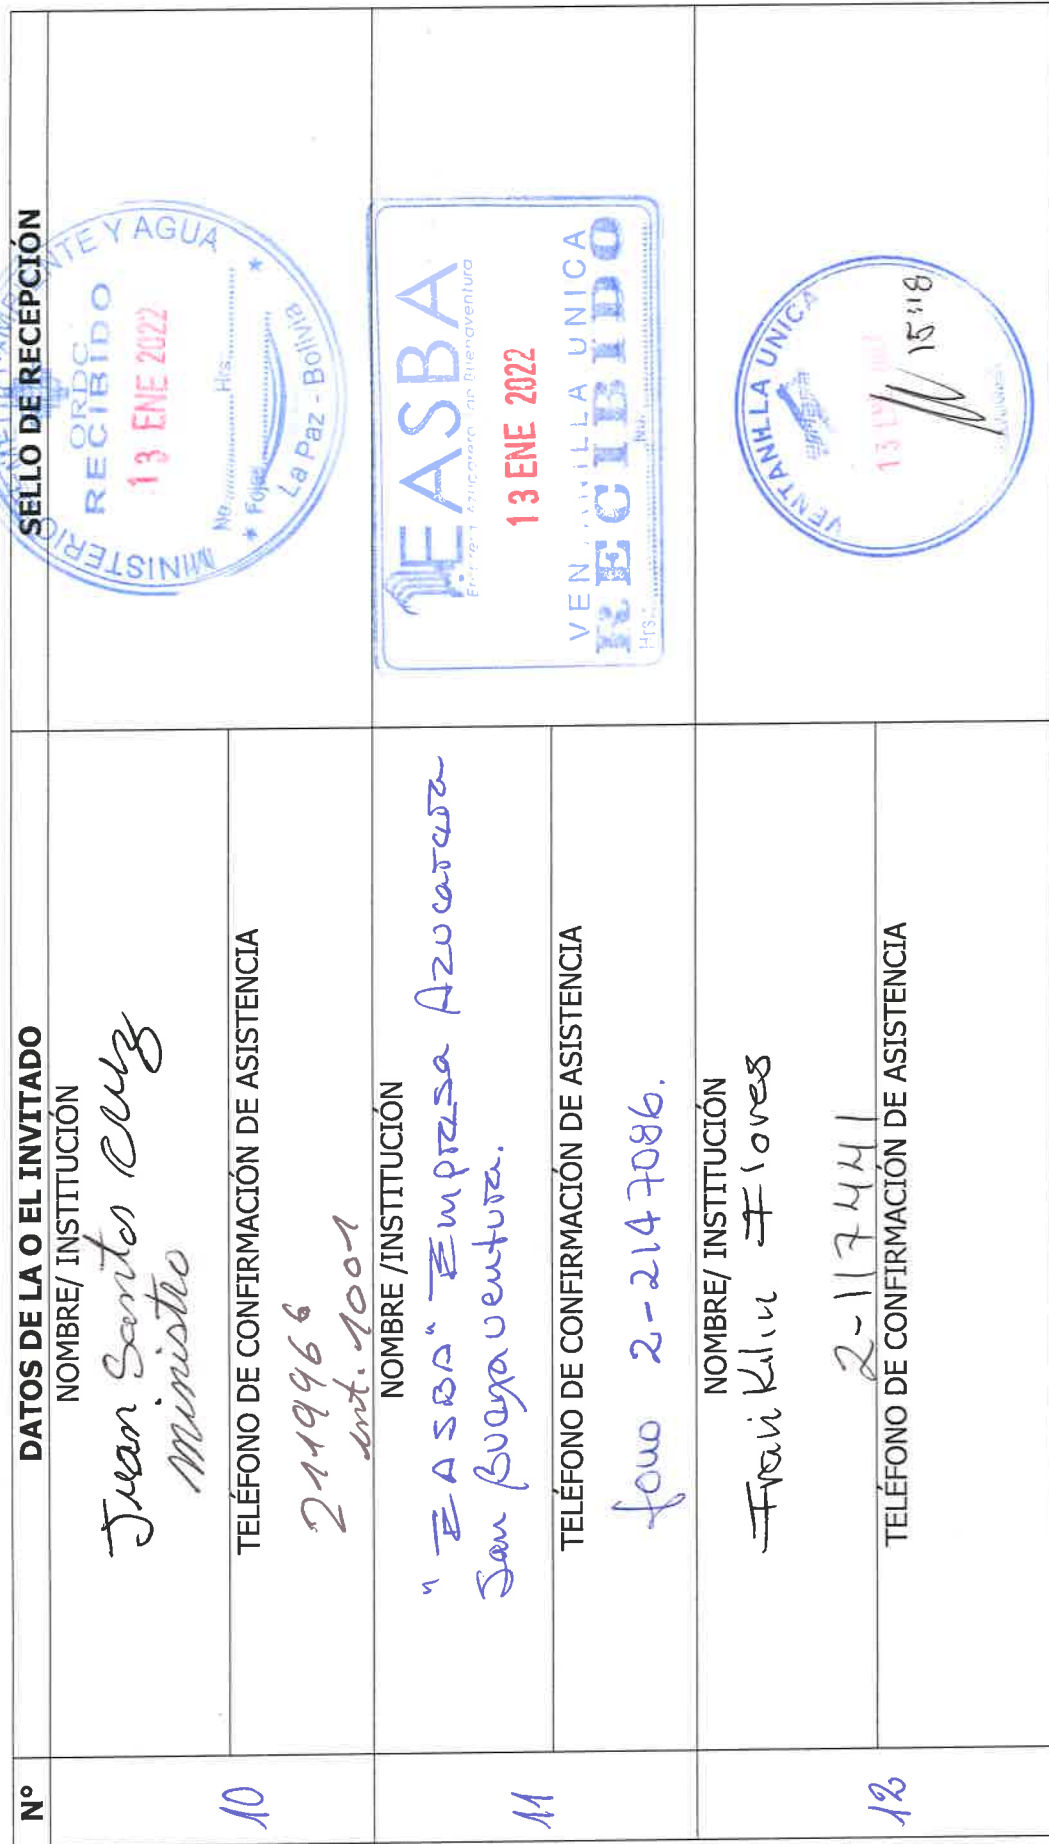 N°
DATOS DE LA O EL INVITADO
SELLO DE RECEPCIÓN
10
NOMBRE/ INSTITUCIÓN
Juan Santos Cruz
Ministro
TELÉFONO DE CONFIRMACIÓN DE ASISTENCIA
2119966
int. 1001
MINISTERIO
NTE Y AGUA
ORDC
RECIBIDO
13 ENE 2022
No. Hrs.
Fojas
La Paz - Bolivia
11
NOMBRE /INSTITUCIÓN
"EASBA" Empresa Azucarera
San Buenaventura.
TELÉFONO DE CONFIRMACIÓN DE ASISTENCIA
fono 2-2147086.
EASBA
Empresa Azucarera San Buenaventura
13 ENE 2022
VENTANILLA UNICA
RECIBIDO
Hrs.
12
NOMBRE/ INSTITUCIÓN
Franklin Flores
2-117441
TELÉFONO DE CONFIRMACIÓN DE ASISTENCIA
VENTANILLA UNICA
13
15:18